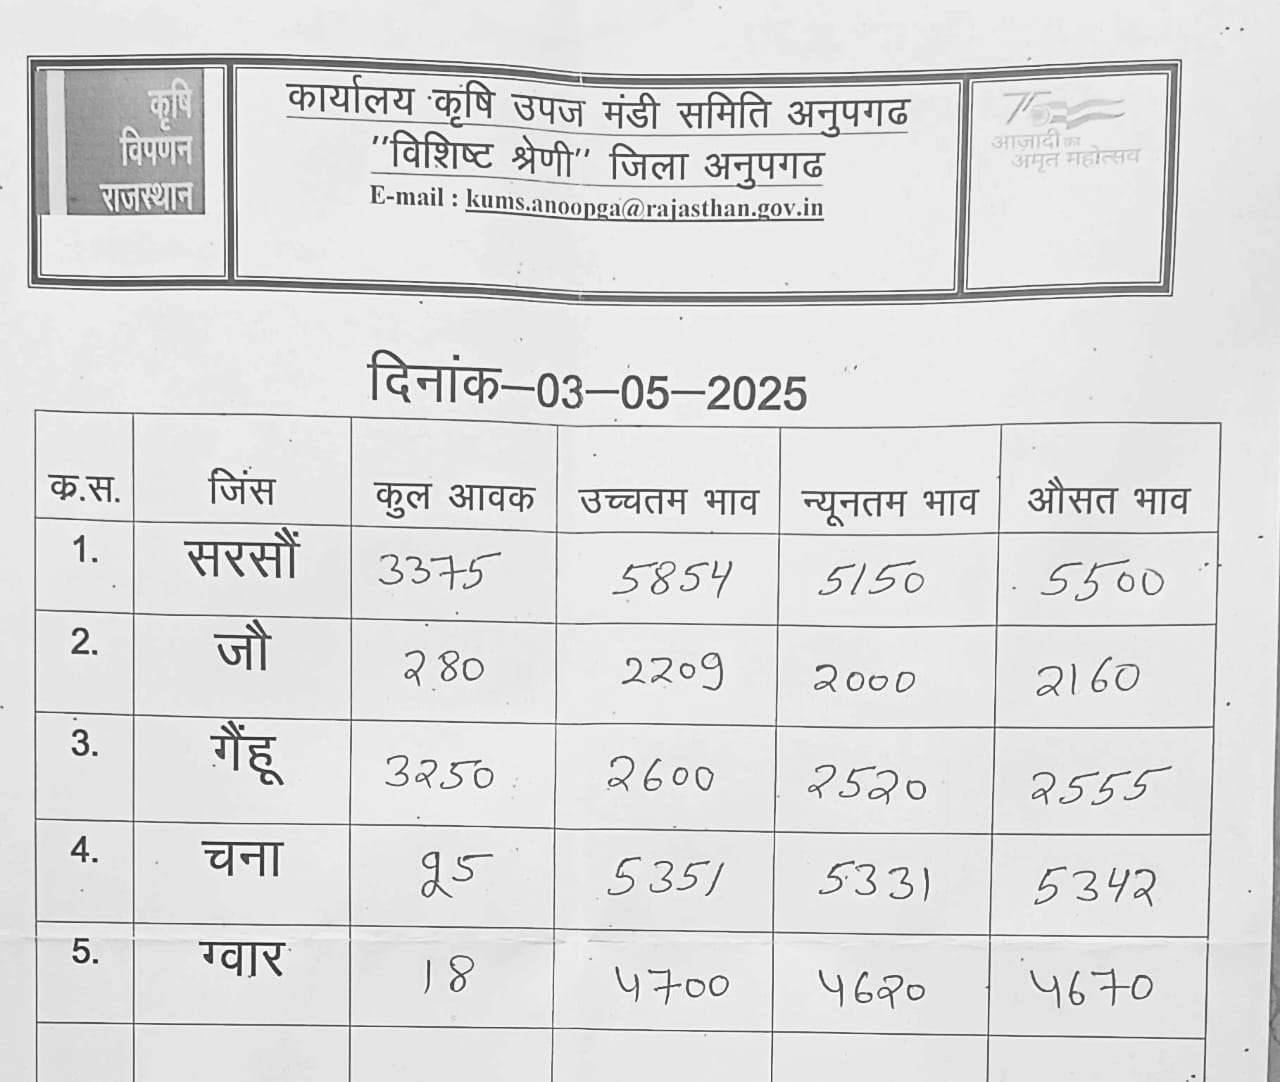 कृषि
विपणन
राजस्थान
कार्यालय कृषि उपज मंडी समिति अनुपगढ
"विशिष्ट श्रेणी" जिला अनुपगढ
E-mail : kums.anoopga@rajasthan.gov.in
75
आज़ादी का
अमृत महोत्सव
दिनांक–03–05–2025
क.स. जिंस कुल आवक उच्चतम भाव न्यूनतम भाव औसत भाव
1. सरसौं 3375 5854 5150 5500
2. जौ 280 2209 2000 2160
3. गैंहू 3250 2600 2520 2555
4. चना 5351 5331 5342
5. ग्वार 18 4700 4620 4670